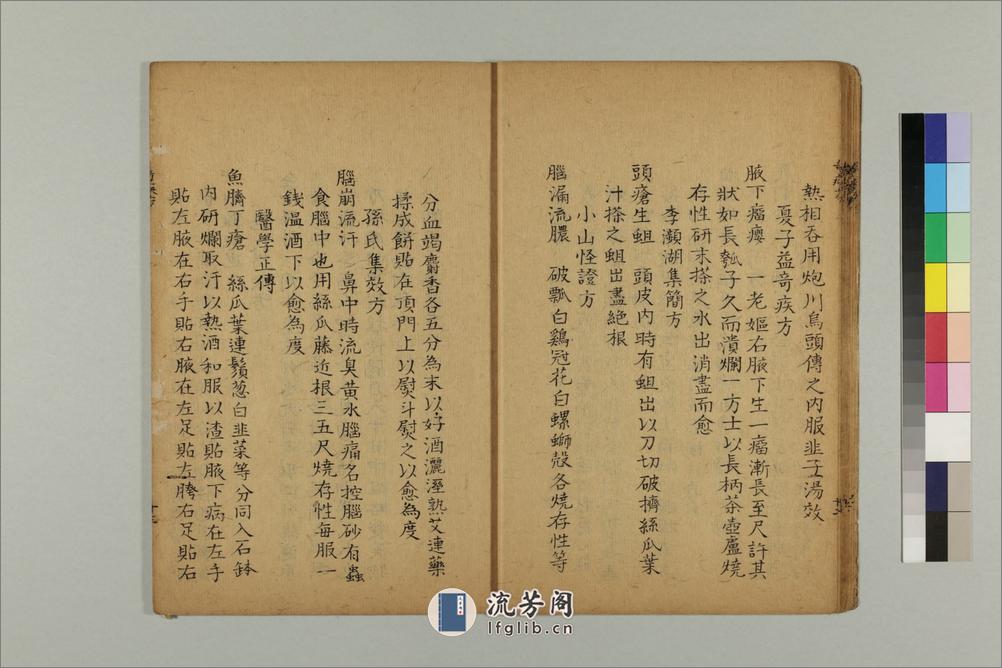 熱相吞用炮川烏頭傅之內服韭子湯效
夏子益奇疾方
腋下瘤癭　一老嫗右腋下生一瘤漸長至尺許其
狀如長瓠子久而潰爛一方士以長柄茶壺盧燒
存性研末搽之水出消盡而愈
李瀕湖集簡方
頭瘡生蛆　頭皮內時有蛆出以刀切破擠絲瓜葉
汁搽之蛆出盡絕根
小山怪證方
腦漏流膿　破瓢白鷄冠花白螺螄殼各燒存性等
分血竭麝香各五分為末以好酒灑溼熟艾連藥
揉成餅貼在頂門上以熨斗熨之以愈為度
孫氏集效方
腦崩流汗　鼻中時流臭黃水腦痛名控腦砂有蟲
食腦中也用絲瓜藤近根三五尺燒存性每服一
錢溫酒下以愈為度
醫學正傳
魚臍丁瘡　絲瓜葉連鬚葱白韭菜等分同入石鉢
內研爛取汁以熱酒和服以渣貼腋下病在左手
貼左腋在右手貼右腋在左足貼左胯右足貼右
流芳阁
lfglib.cn